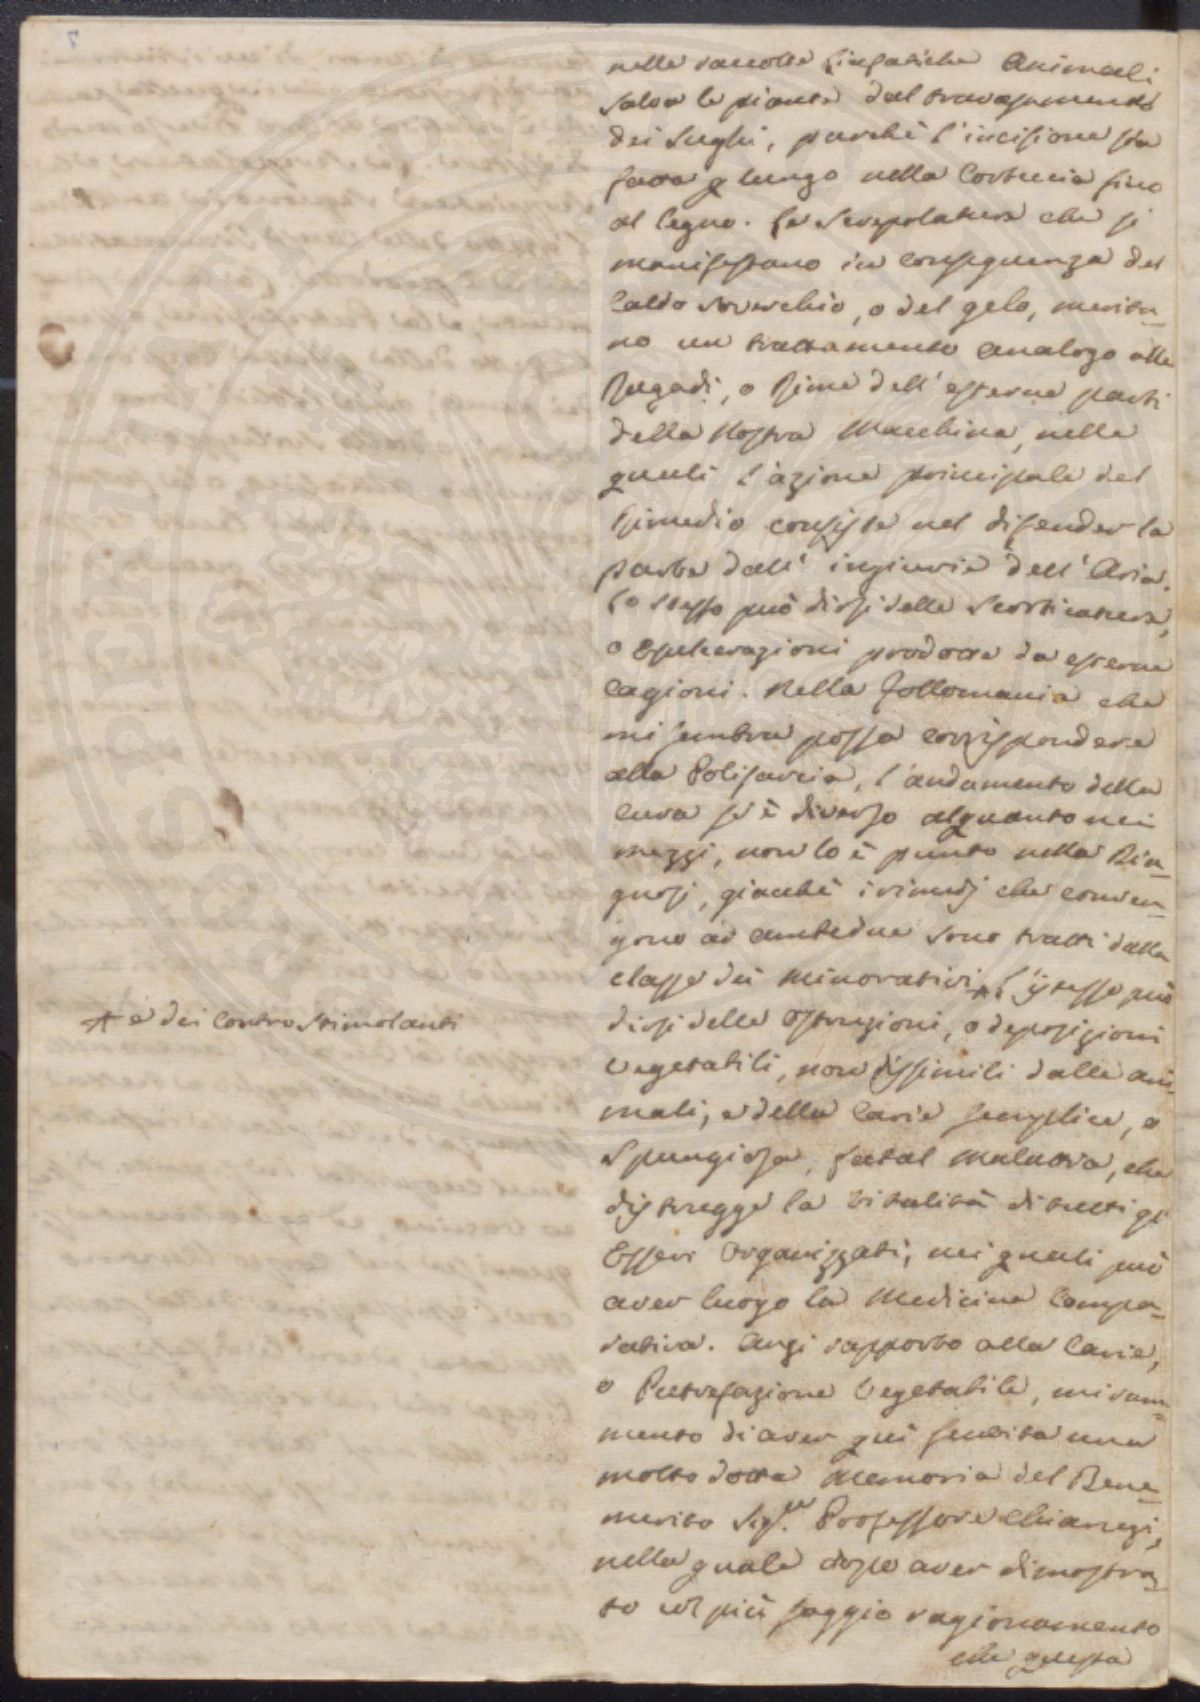 7
nelle raccolte linfatiche Animali
salva le piante dal travasamento
dei sughi, purchè l'incisione sia
fatta p lungo nella Corteccia fino
al legno. Le Screpolature che si
manifestano in conseguenza del
Caldo soverchio, o del gelo, merita=
no un trattamento analogo alle
Ragadi, o Rime dell'esterne parti
della Nostra Macchina, nelle
quali l'azione principale del
Rimedio consiste nel difender la
parte dall'ingiurie dell'Aria.
Lo stesso può dirsi delle Scorticature,
o Esulcerazioni prodotte da esterne
Cagioni. Nella follomania che
mi sembra possa corrispondere
alla Polisarcia, l'andamento della
Cura se è diverso alquanto nei
mezzi, non lo è punto nella Dia=
gnosi, giacchè i rimedj che conven=
gono ad ambedue sono tratti dalla
classe dei Minorativi ⁂. L'istesso può
⁂ e dei Controstimolanti
dirsi delle Ostruzioni, o deposizioni
Vegetabili, non dissimili dalle ani=
mali, e della Carie semplice, o
Spungiosa, fatal malattia, che
distrugge la vitalità di tutti gl'
Esseri Organizzati, nei quali può
aver luogo la Medicina Compa=
rativa. Anzi rapporto alla Carie,
o Putrefazione Vegetabile, mi ram=
mento di aver quì sentita una
molto dotta Memoria del Bene=
merito Sig.re Professore Chiarugi,
nella quale dopo aver dimostra=
to col più saggio ragionamento
che questa